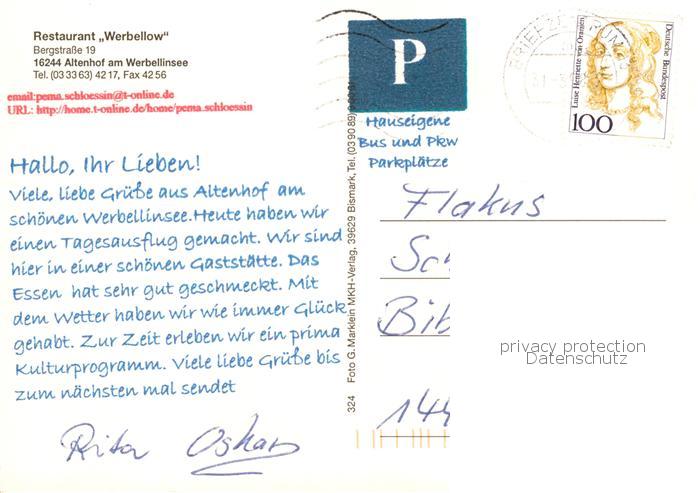 Restaurant „Werbellow"
Bergstraße 19
16244 Altenhof am Werbellinsee
Tel. (03 33 63) 42 17, Fax 42 56
email:pema.schloessin@t-online.de
URL: http://home.t-online.de/home/pema.schloessin
Hallo, Ihr Lieben!
Viele, liebe Grüße aus Altenhof am
schönen Werbellinsee.Heute haben wir
einen Tagesausflug gemacht. Wir sind
hier in einer schönen Gaststätte. Das
Essen hat sehr gut geschmeckt. Mit
dem Wetter haben wir wie immer Glück
gehabt. Zur Zeit erleben wir ein prima
Kulturprogramm. Viele liebe Grüße bis
zum nächsten mal sendet
Rita Oskar
324 Foto G. Marklein MKH-Verlag, 39629 Bismark, Tel. (0 39 089)
P
Hauseigene
Bus und Pkw
Parkplätze
BRIEFZENTRUM
Luise Henriette von Oranien
Deutsche Bundespost
100
Flakus
Sch
Bib
144
privacy protection
Datenschutz